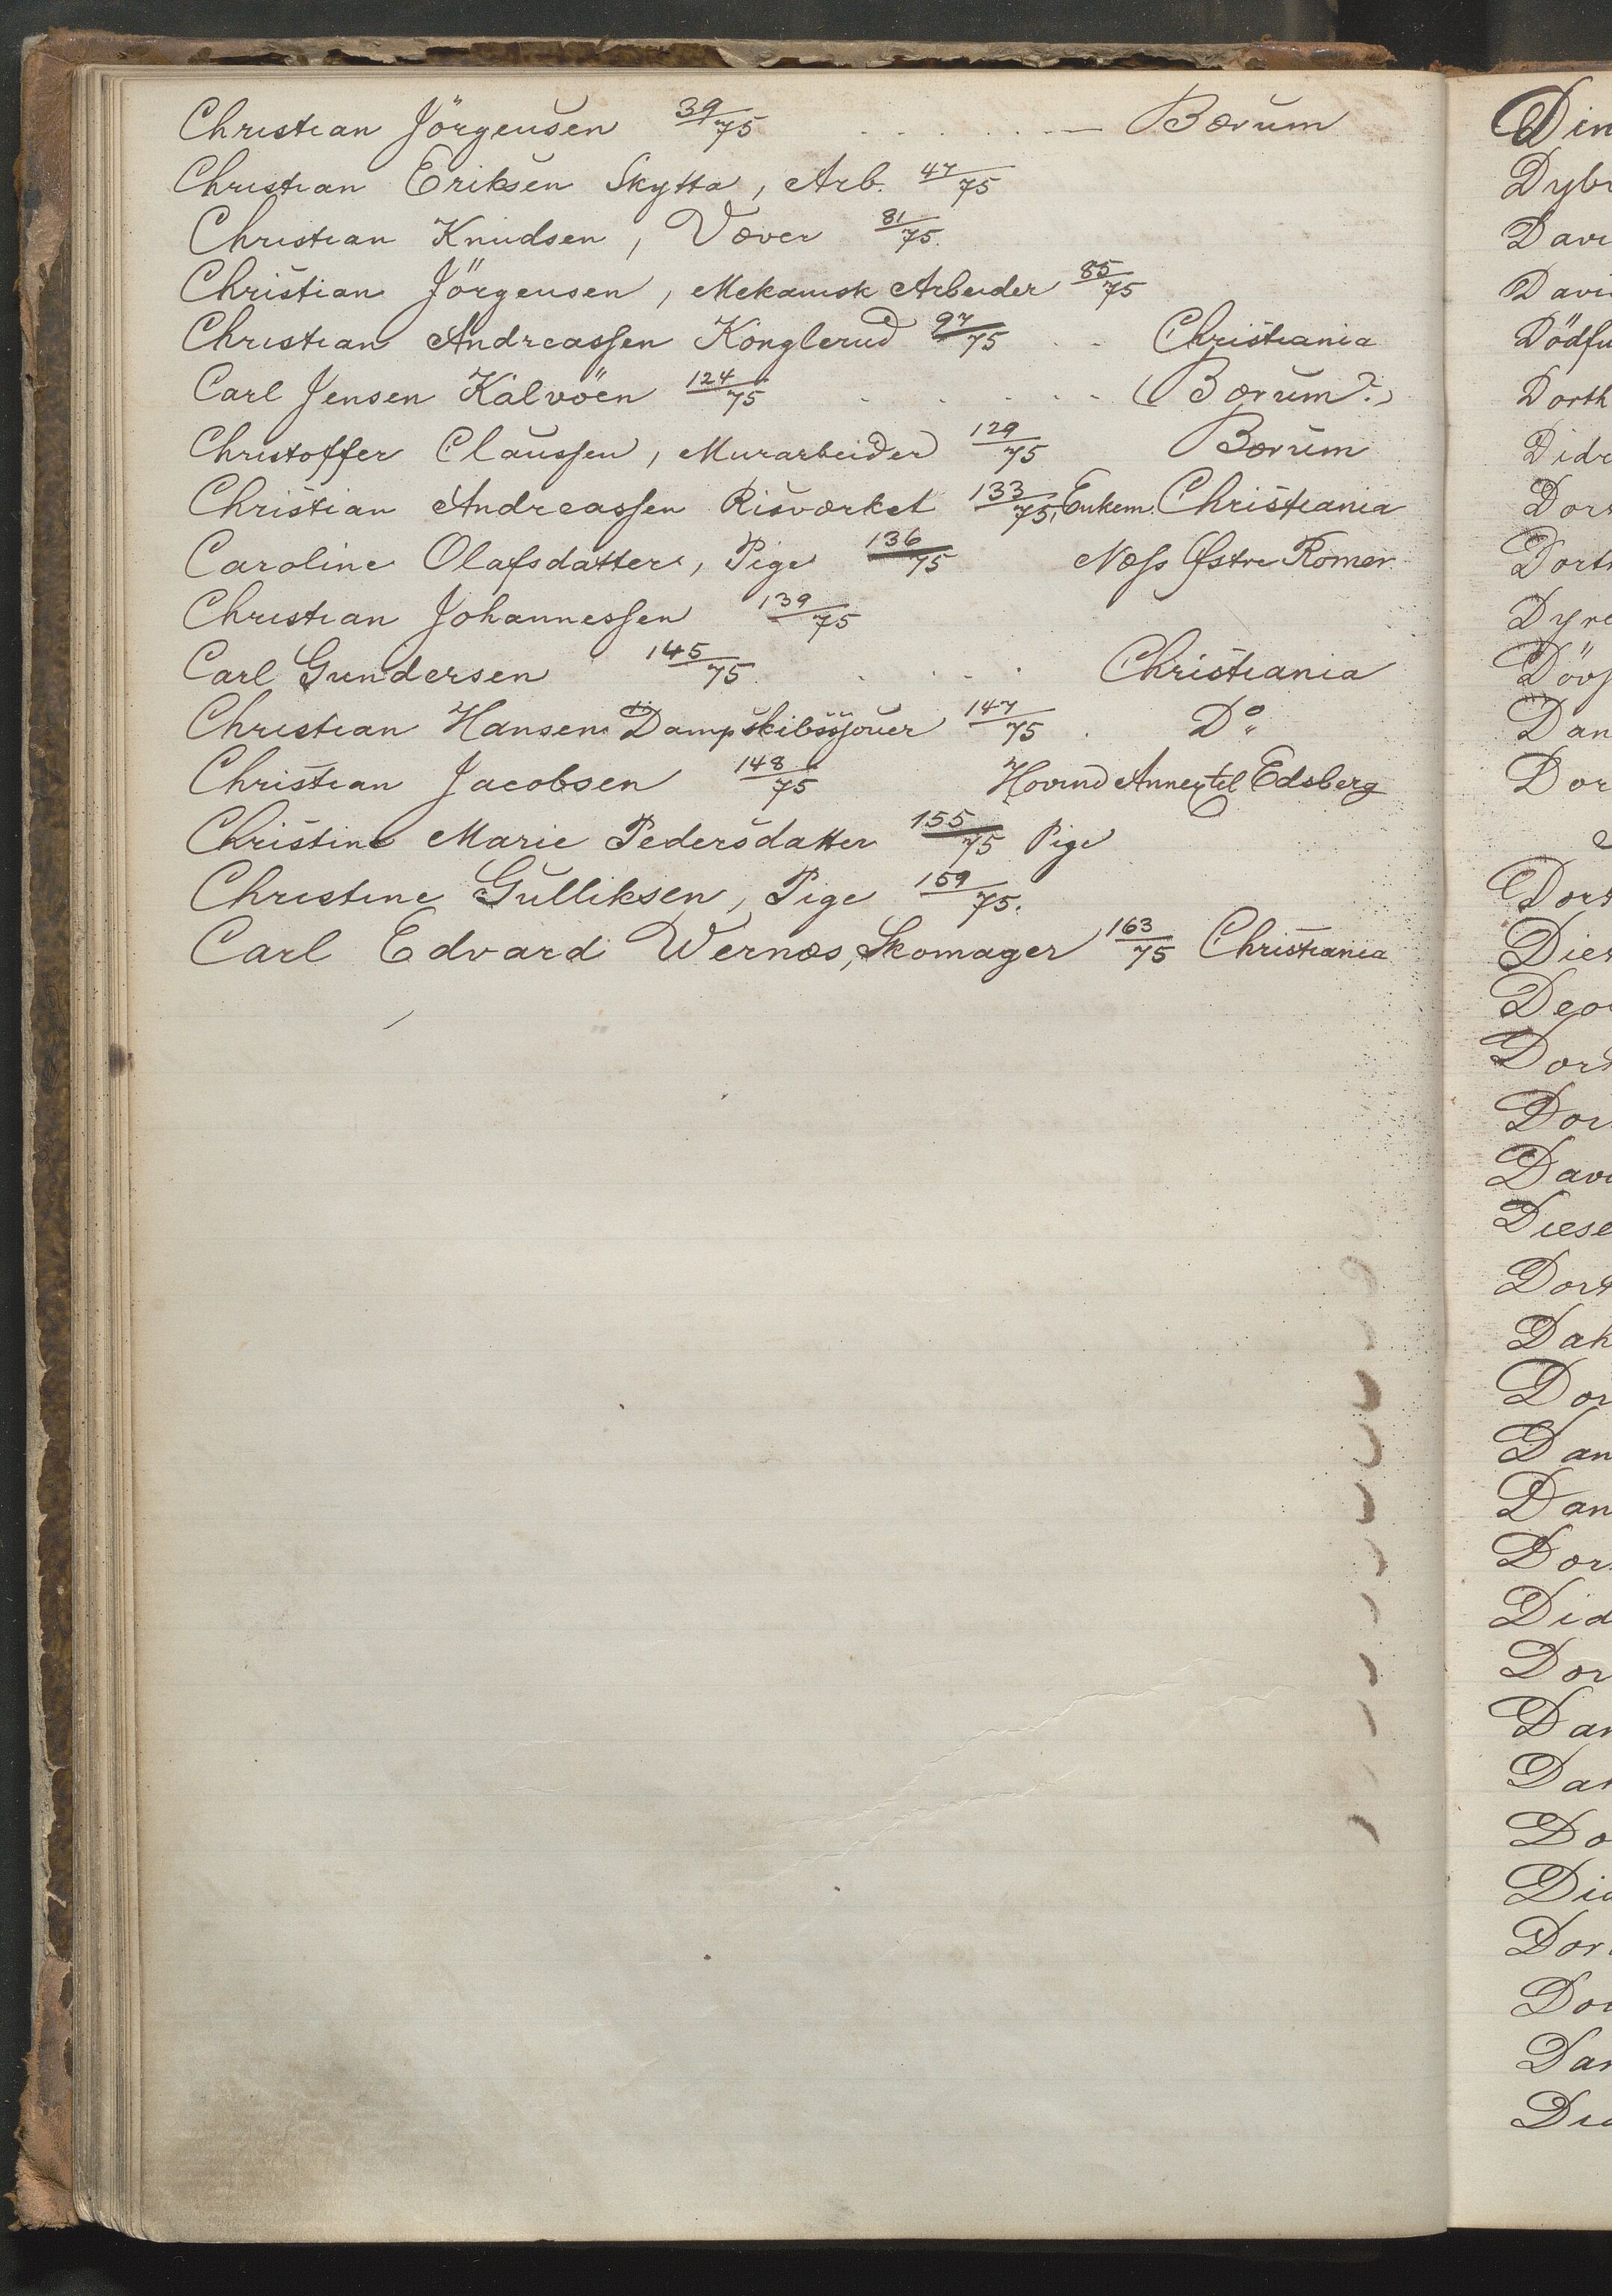 Christian Jörgensen 39/75 . . . . . . — Bærum
Christian Eriksen Skytta, Arb. 47/75
Christian Knudsen, Væver 81/75.
Christian Jörgensen, Mekanisk Arbeider 85/75
Christian Andreassen Konglerud 97/75 . . Christiania
Carl Jensen Kalvöen 124/75 . . . . . (Bærum?)
Christoffer Claussen, Murarbeider 129/75 Bærum
Christian Andreassen Risværket 133/75, Enkem. Christiania
Caroline Olafsdatter, Pige 136/75 Næss Østre Romer.
Christian Johannessen 139/75
Carl Gundersen 145/75. . . . . Christiania
Christian Hansen Dampskibssjouer 147/75 . Do.
Christian Jacobsen 148/75 Hovind Annex til Edsberg
Christine Marie Pedersdatter 155/75 Pige
Christine Gulliksen, Pige 159/75.
Carl Edvard Wernæs, Skomager 163/75 Christiania